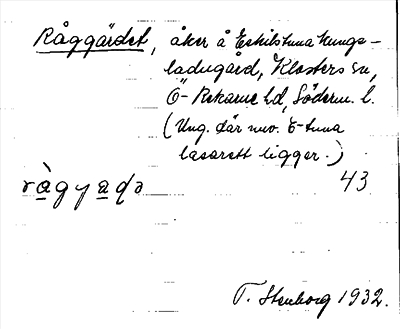 Råggärdet, åker å Eskilstuna kungs-
ladugård, Klosters sn,
Ö-Rekarne hd, Söderm. l.
(Ung. där nuv. E-tuna
lasarett ligger.)
43
T. Stenborg 1932.